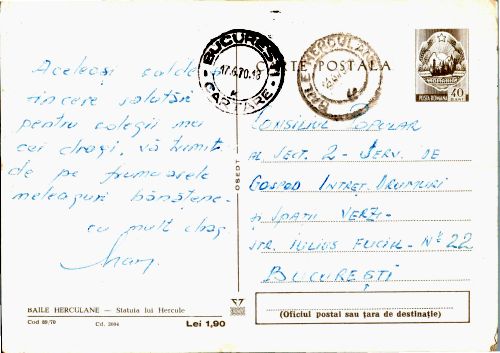 CARTE POSTALA
BUCURESTI
17.6.70.19
CARTARE
BĂILE HERCULANE
POSTA ROMANA
40
BANI
Aceleași calde și
sincere salutări
pentru colegii mei
cei dragi, vă trimit
de pe frumoasele
meleaguri bănățene.
cu mult drag
CONSILIUL POPULAR
AL SECT. 2 - SERV. DE
GOSPOD ÎNTREȚ. DRUMURI
ȘI SPAȚII VERZI.
STR. IULIUS FUCIK - Nº 22
BUCUREȘTI
BAILE HERCULANE — Statuia lui Hercule
Cod 89/70
Cd. 2004
Lei 1,90
(Oficiul postal sau țara de destinație)